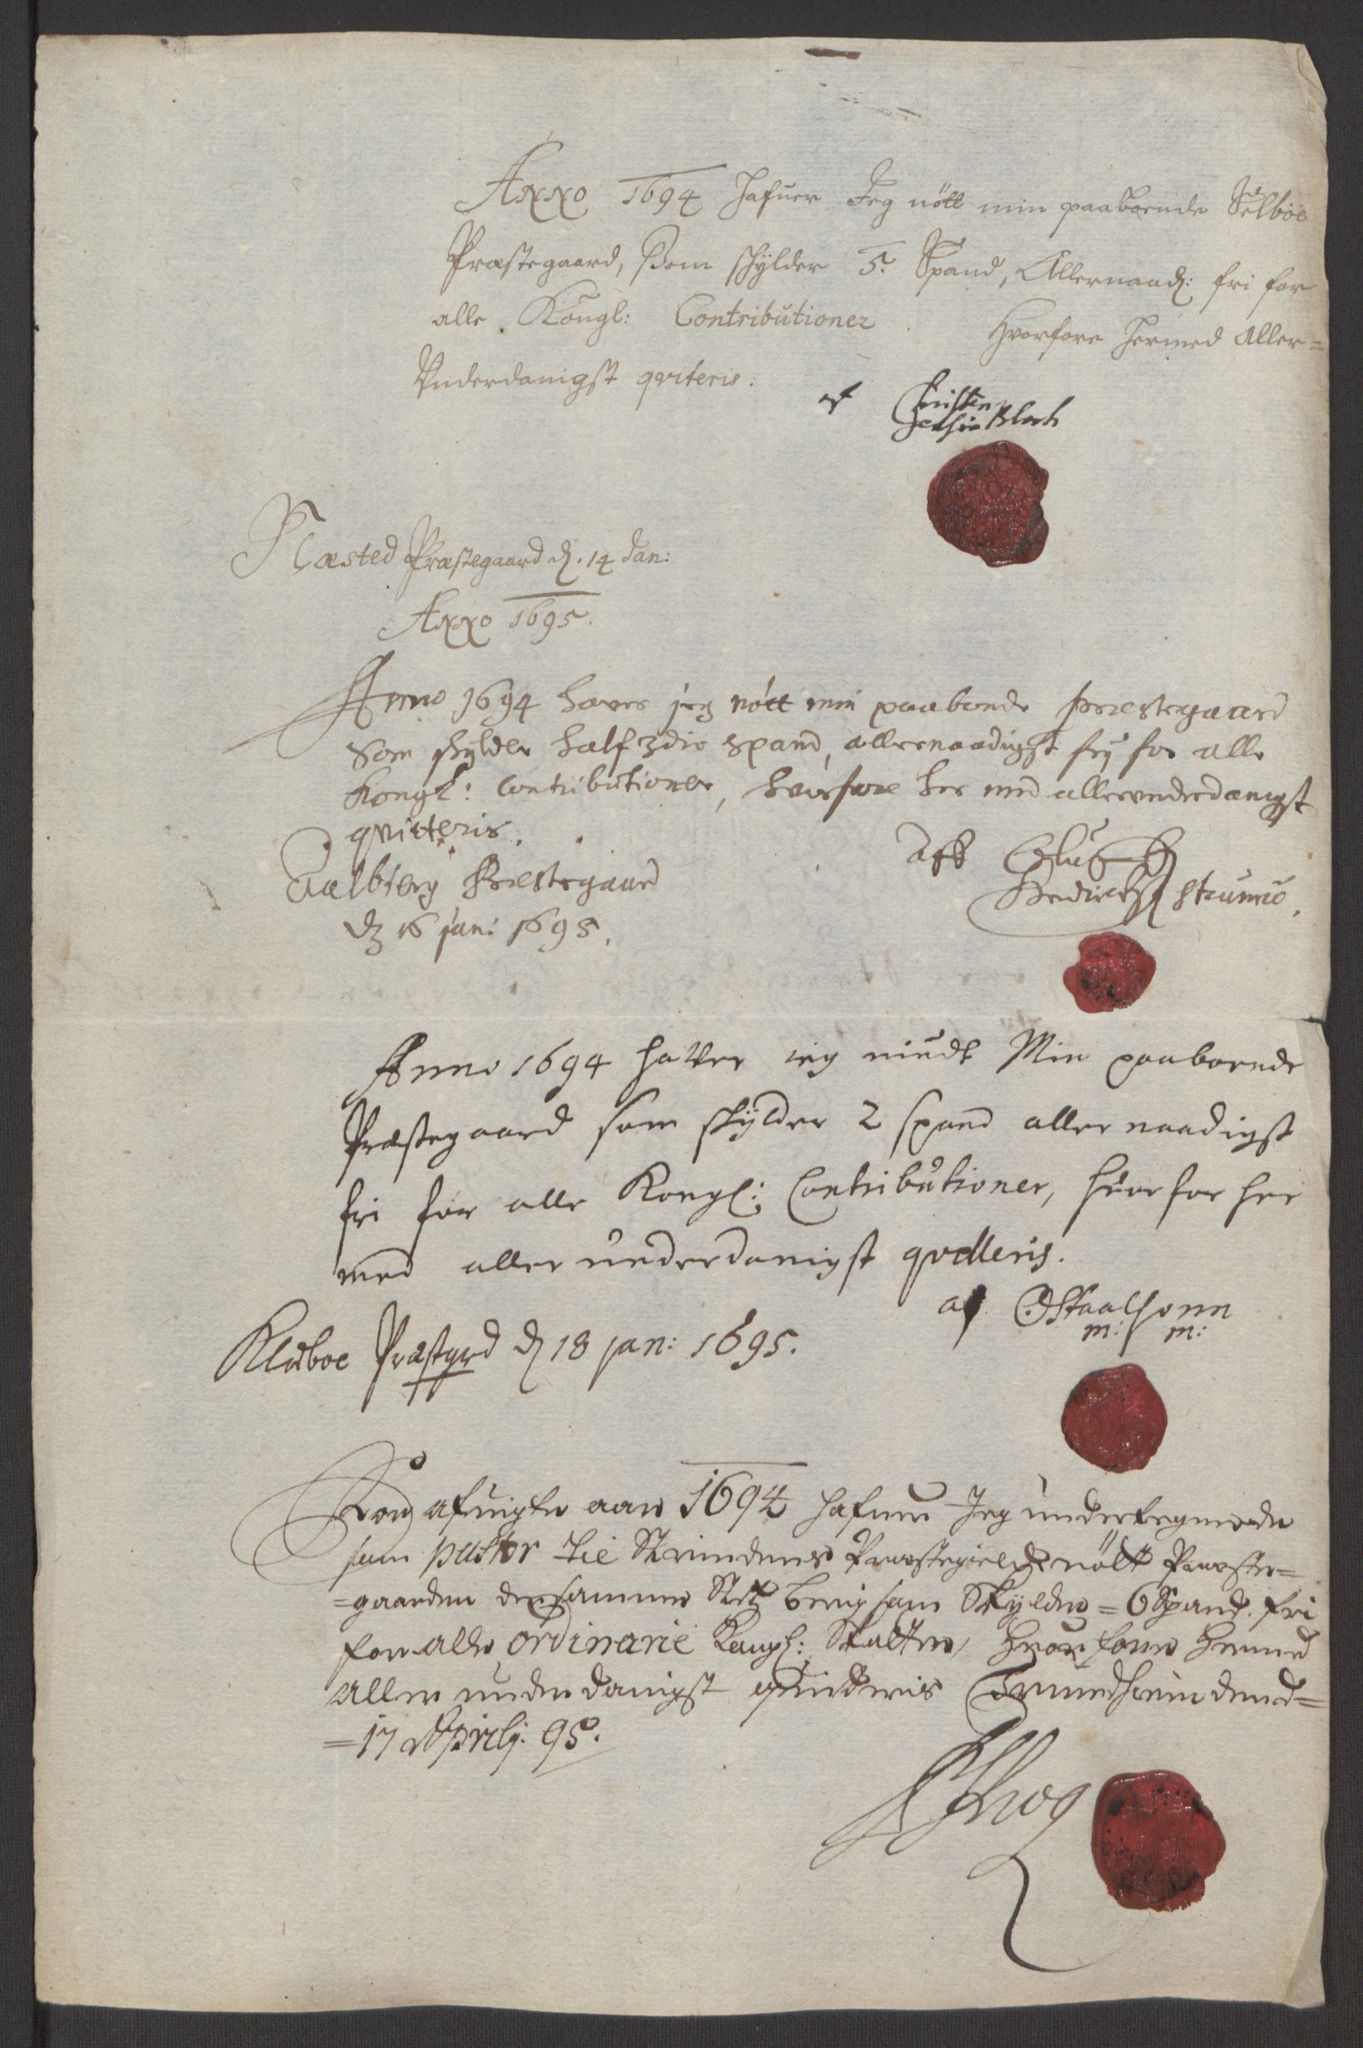 Anno 1694 hafuer Jeg nött min paaboende Selboe
Præstegaard, Som schylder 5. Spand, Allernaad: fri for
alle Kongl: Contributioner Hvorfore hermed Aller=
Underdanigst qviteris.
af Christen
Jensøn Bloch
Næsted Præstegaard d. 14 Jan:
Anno 1695.
Anno 1694 haver jeg nött min paaboende præstegaard
som skylder half 3die spand, allernaadigst fry for alle
Kongl: Contributioner, hvorfore her med allerunderdanigst
qvitteris.
Aff Oluf
Hendrichsøn
Aalbierg Præstegaard
d 16 jan: 1695.
Anno 1694 haffver ieg niudt Min paaboende
Præstegaard som skylder 2 spand allernaadigst
fri for alle Kongl: Contributioner, huorfor her
med allerunderdanigst qvitteris.
af
m: m:
Kleboe Præstgrd d 18 jan: 1695.
For afuigte aar 1694 hafuer Jeg undertegnede
som pastor til Strindens Præstegield nött Præste=
=gaarden densamme Sted Berig som Skylder =6 Spand. fri
for alle ordinarie Kongl: Skatter, Huorfore hermed
Allerunderdanigst quitteris Trundheim dend=
=17 Aprilj. 95.